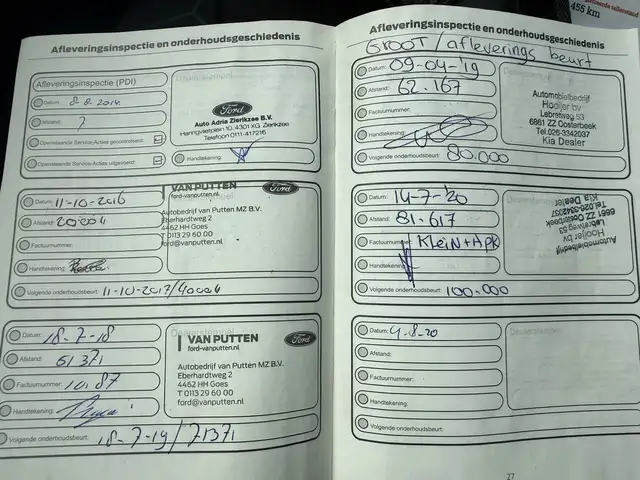 Afleveringsinspectie en onderhoudsgeschiedenis
Afleveringsinspectie (PDI)
Datum: 8-8-2014
Afstand: 7
Openstaande Service-Acties gecontroleerd:
Openstaande Service-Acties uitgevoerd:
Ford
Auto Adria Zierikzee B.V.
Haringvlietplein 10, 4301 XG Zierikzee
Telefoon 0111-417216
Handtekening:
Datum: 11-10-2016
Afstand: 20004
Factuurnummer:
Handtekening:
Volgende onderhoudsbeurt: 11-10-2017/40004
VAN PUTTEN
ford-vanputten.nl
Ford
Autobedrijf van Putten MZ B.V.
Eberhardtweg 2
4462 HH Goes
T 0113 29 60 00
ford@vanputten.nl
Datum: 18-7-18
Afstand: 51371
Factuurnummer: 10187
Handtekening:
Volgende onderhoudsbeurt: 18-7-19/71371
Dealerstempel
VAN PUTTEN
ford-vanputten.nl
Ford
Autobedrijf van Putten MZ B.V.
Eberhardtweg 2
4462 HH Goes
T 0113 29 60 00
ford@vanputten.nl
455 km
Afleveringsinspectie en onderhoudsgeschiedenis
GROOT / afleverings beurt
Datum: 09-04-19
Afstand: 62.167
Factuurnummer:
Handtekening:
Volgende onderhoudsbeurt: 80.000
Automobielbedrijf
Hooijer bv
Lebretweg 53
6861 ZZ Oosterbeek
Tel.026-3342037
Kia Dealer
Datum: 14-7-'20
Afstand: 81.617
Factuurnummer: Klein + Apk
Handtekening:
Volgende onderhoudsbeurt: 100.000
Automobielbedrijf
Hooijer bv
Lebretweg 53
6861 ZZ Oosterbeek
Tel.026-3342037
Kia Dealer
Datum: 4-8-20
Afstand:
Factuurnummer:
Handtekening:
Volgende onderhoudsbeurt:
Dealerstempel
27